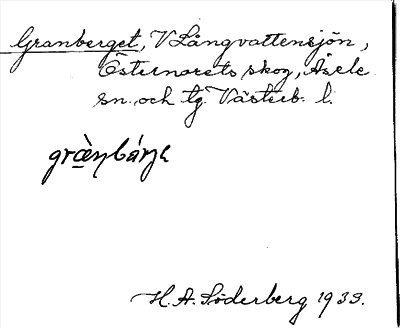 Granberget, V Långvattensjön,
Östernorets skog, Åsele
sn. och tg. Västerb. l.
græ̀ŋbárjɛ
H. A. Söderberg 1933.